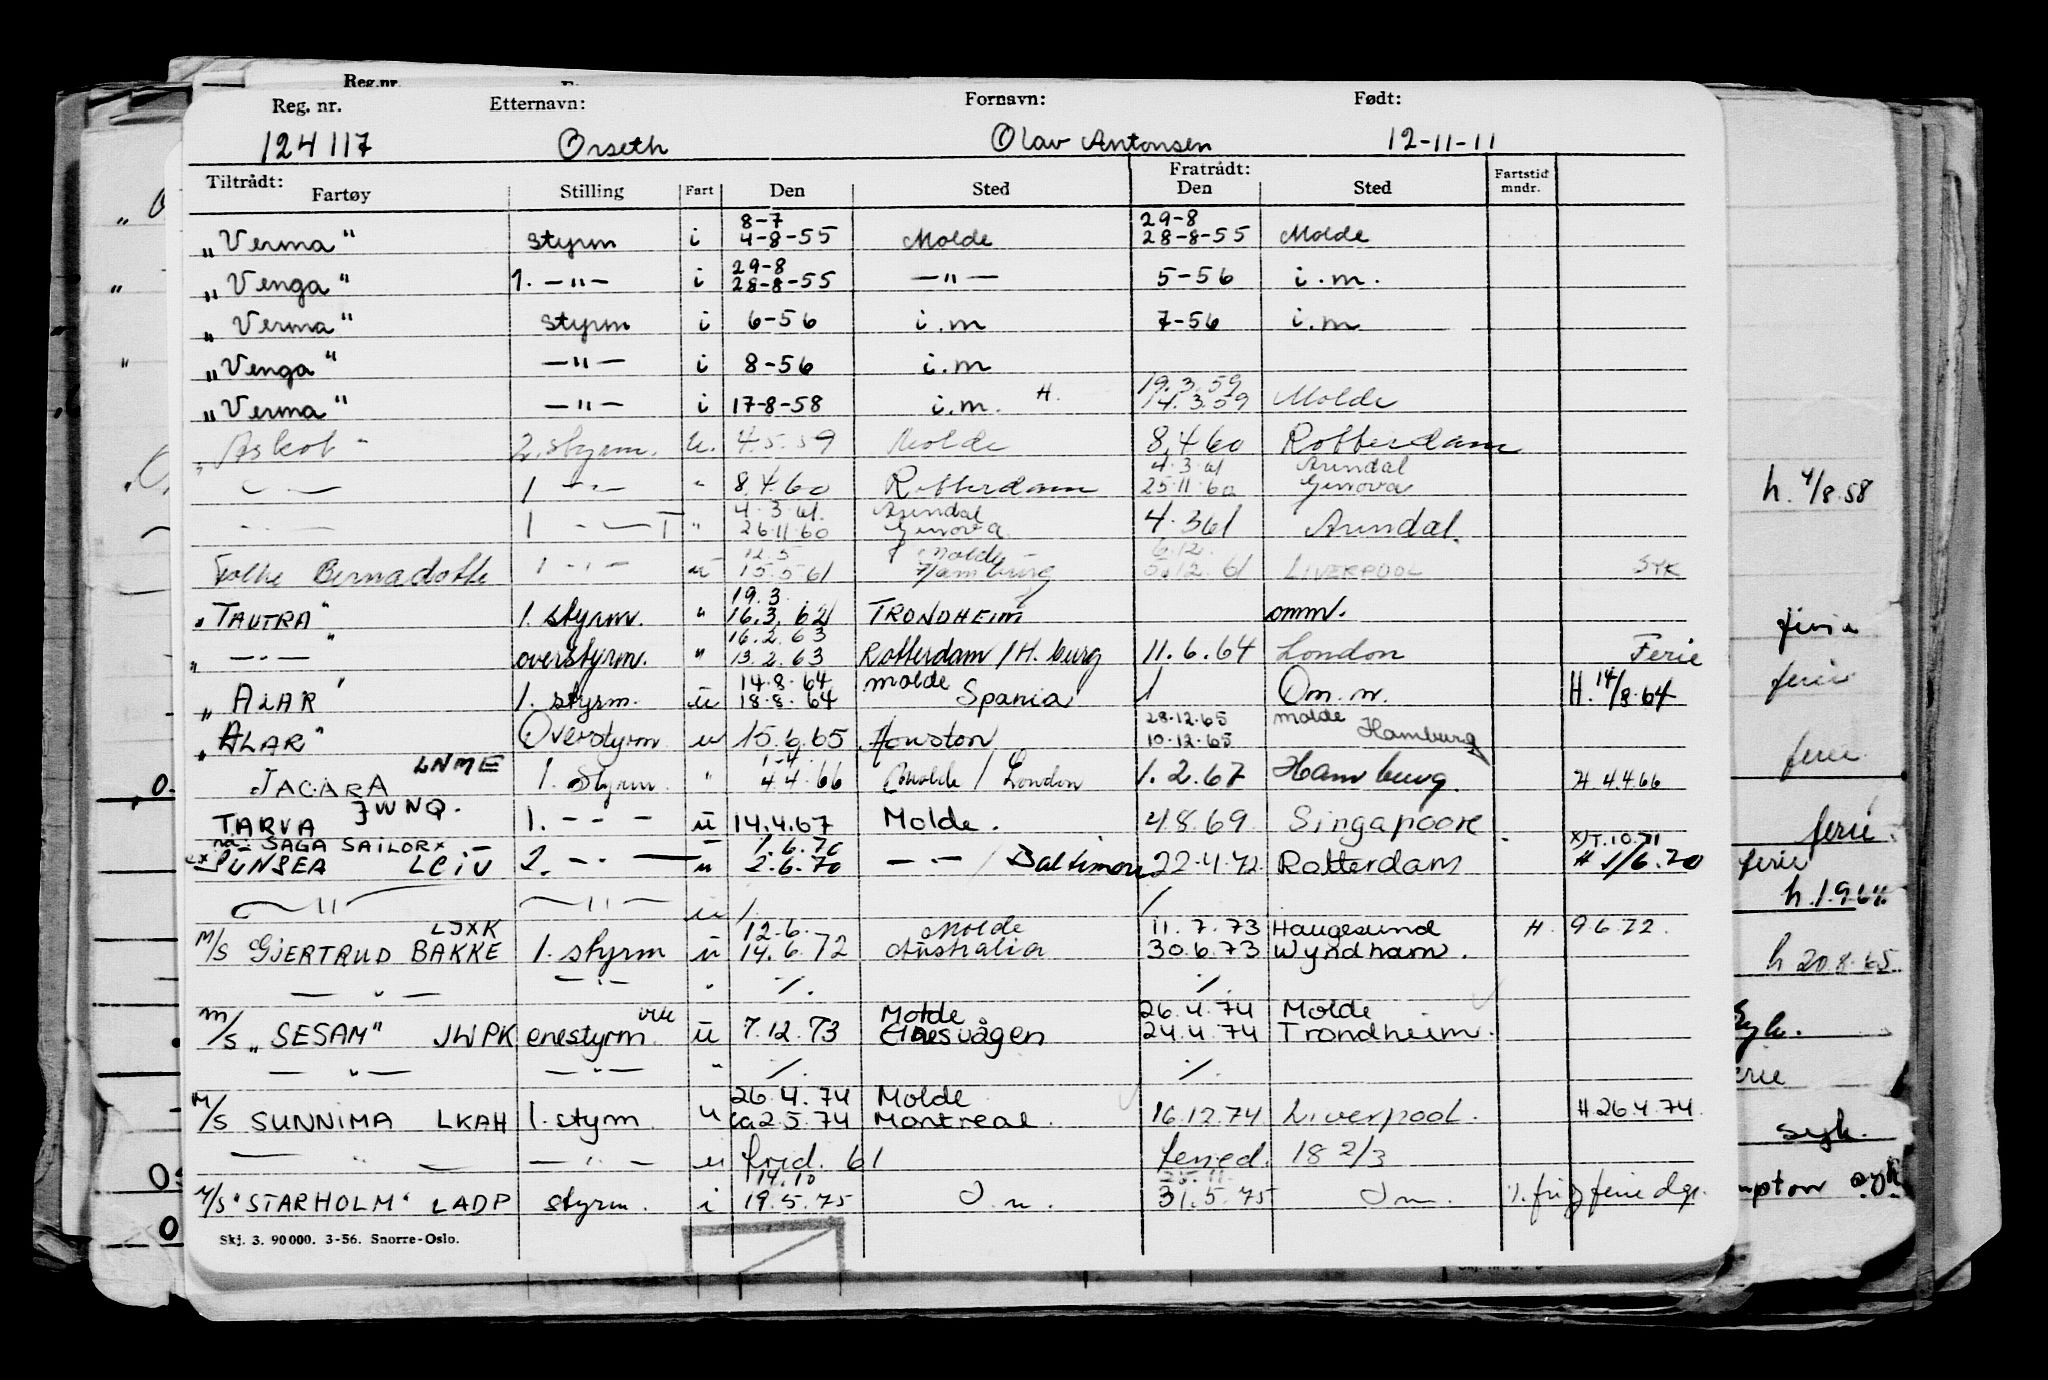 Reg.nr.
Reg. nr. Etternavn: Fornavn: Født:
124117 Orseth Olav Antonsen 12-11-11
Tiltrådt: Fratrådt: Fartstid mndr.
Fartøy Stilling Fart Den Sted Den Sted
8-7 29-8
„Verma" styrm i 4-8-55 Molde 28-8-55 Molde
29-8
„Venga" 1. -"- i 28-8-55 -"- 5-56 i.m.
„Verma" styrm i 6-56 i.m 7-56 i.m
„Venga" -"- i 8-56 i.m
19.3.59
„Verma" -"- i 17-8-58 i.m. H. 14.3.59 Molde
„Askot" 2. styrm. u. 4.5.59 Molde 8.4.60 Rotterdam
4.3.61 Arendal
-"- 1 -"- " 8.4.60 Rotterdam 25.11.60 Genova
4.3.61. Arendal
-"- 1 -"- " 26.11.60 Genova 4.3.61 Arendal.
12.5 Molde 6.12.
Folke Bernadotte 1 -"- u 15.5.61 Hamburg 5.12.61 LIVERPOOL SYK
19.3.
„TAUTRA" 1. styrm. " 16.3.62 TRONDHEIM omm.
16.2.63
„ -"- " overstyrm. " 13.2.63 Rotterdam/H.burg 11.6.64 London Ferie
14.8.64 Molde
„ALAR" 1. styrm. u 18.8.64 Spania / Om.m. H. 14/8.64
28.12.65 Molde
„ALAR" Overstyrm u 15.6.65 Houston 10.12.65 Hamburg
LNME 1-4.
JACARA 1. Styrm. " 4.4.66 Molde / London 1.2.67 Hamburg. H 4.4.66
JWNQ.
TARVA 1. - - - u 14.4.67 Molde. 4.8.69. Singapoore
SAGA SAILOR x 1.6.70 x) T.10.71
ex SUNSEA LCIU 2. -"- u 2.6.70 -"- / Baltimore 22.4.72 Rotterdam H 1/6.70
-"- -"- u /. /
LJXK 12.6. Molde 11.7.73 Haugesund H. 9.6.72.
M/S GJERTRUD BAKKE 1. styrm u 14.6.72 Australia 30.6.73 Wyndham.
-"- -"- " /. /.
vik Molde 26.4.74 Molde
M/S „SESAM" JWPK enestyrm. u 7.12.73 Eidesvågen 24.4.74 Trondheim.
-"- -"- " /. /.
26.4.74 Molde
M/S SUNNIMA LKAH 1. styrm u ca 2.5.74 Montreal. 16.12.74 Liverpool. H 26.4.74.
-"- -"- u frid. 61 feried. 18 2/3
14.10 25.11
M/S "STARHOLM" LADP styrm. i 19.5.75 I.m. 31.5.75 I m. /. fri & feriedgr.
Skj. 3. 90000. 3-56. Snorre-Oslo.
h. 4/8.58
ferie
ferie
ferie
ferie.
ferie
h. 1.9.64.
h 20.8.65.
Syk.
erie
syk.
mpton syk